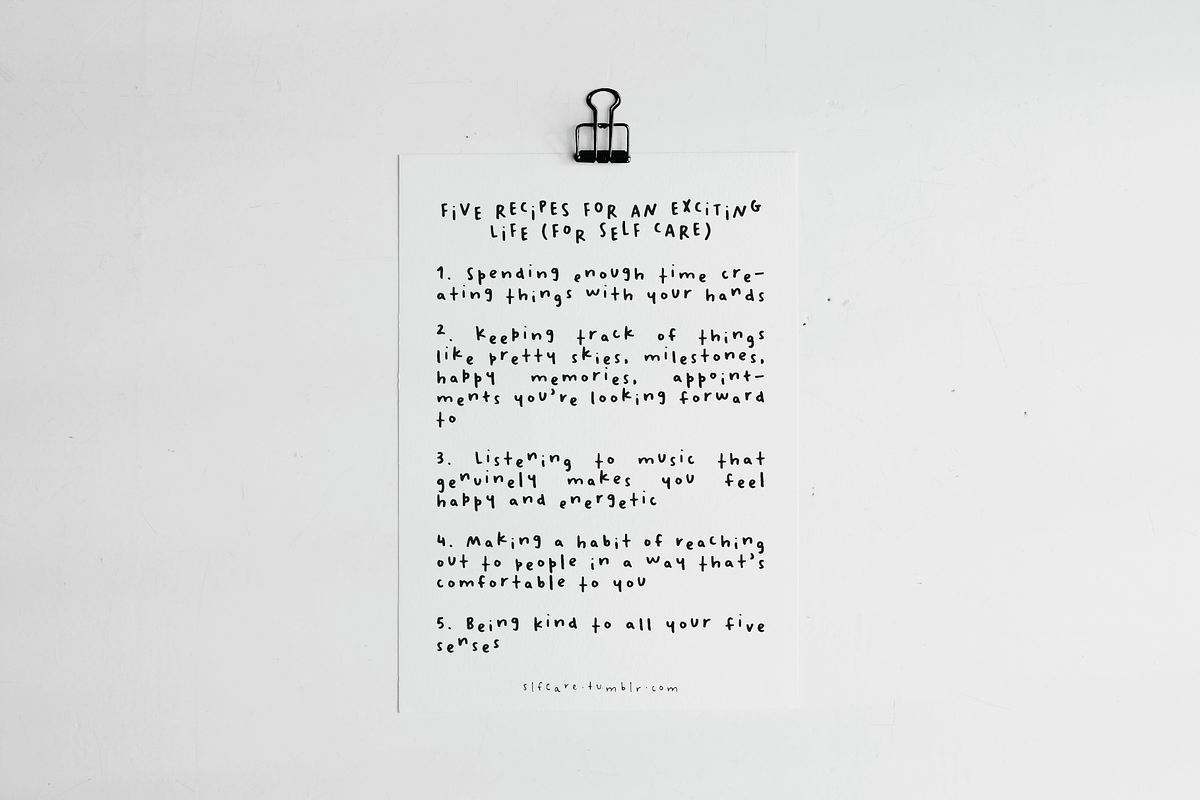 FiVE RECiPES FOR AN EXCiTiNG
LiFE (FOR SELF CARE)
1. Spending enough time cre-
ating things with your hands
2. Keeping track of things
like pretty skies, milestones,
happy memories, appoint-
ments you're looking forward
to
3. Listening to music that
genuinely makes you feel
happy and energetic
4. Making a habit of reaching
out to people in a way that's
comfortable to you
5. Being kind to all your five
senses
slfcare.tumblr.com